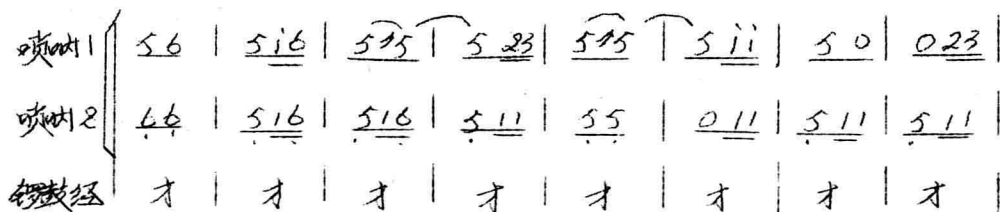 唢呐1 | 56 | 5i6 | 535 | 5 23 | 535 | 5 ii | 5 0 | 0 23 |
唢呐2 | 66 | 516 | 516 | 5 11 | 55 | 0 11 | 5 11 | 5 11 |
锣鼓经 | 才 | 才 | 才 | 才 | 才 | 才 | 才 | 才 |